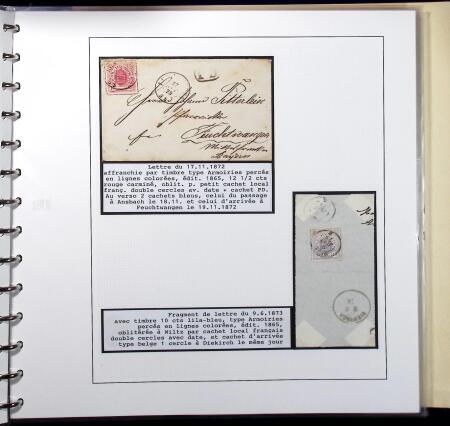 Feuchtwangen
Lettre du 17.11.1872
affranchie par timbre type Armoiries percés
en lignes colorées, édit. 1865, 12 1/2 cts
rouge carminé, oblit. p. petit cachet local
franç. double cercles av. date + cachet PD.
Au verso 2 cachets bleus, celui du passage
à Ansbach le 18.11. et celui d'arrivée à
Feuchtwangen le 19.11.1872
Fragment de lettre du 9.6.1873
avec timbre 10 cts lila-bleu, type Armoiries
percés en lignes colorées, édit. 1865,
oblitérée à Wiltz par cachet local français
double cercles avec date, et cachet d'arrivée
type belge 1 cercle à Diekirch le même jour